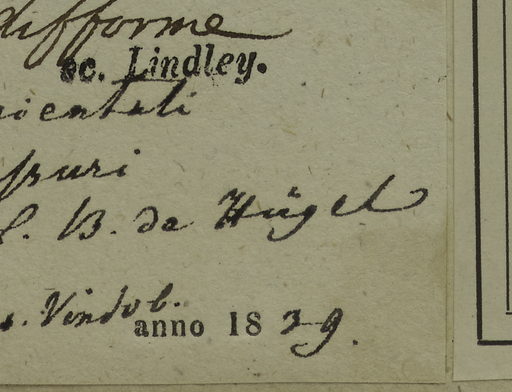 difforme
ec. Lindley.
orientali
B. de Hügel
Vindob.
anno 1839.